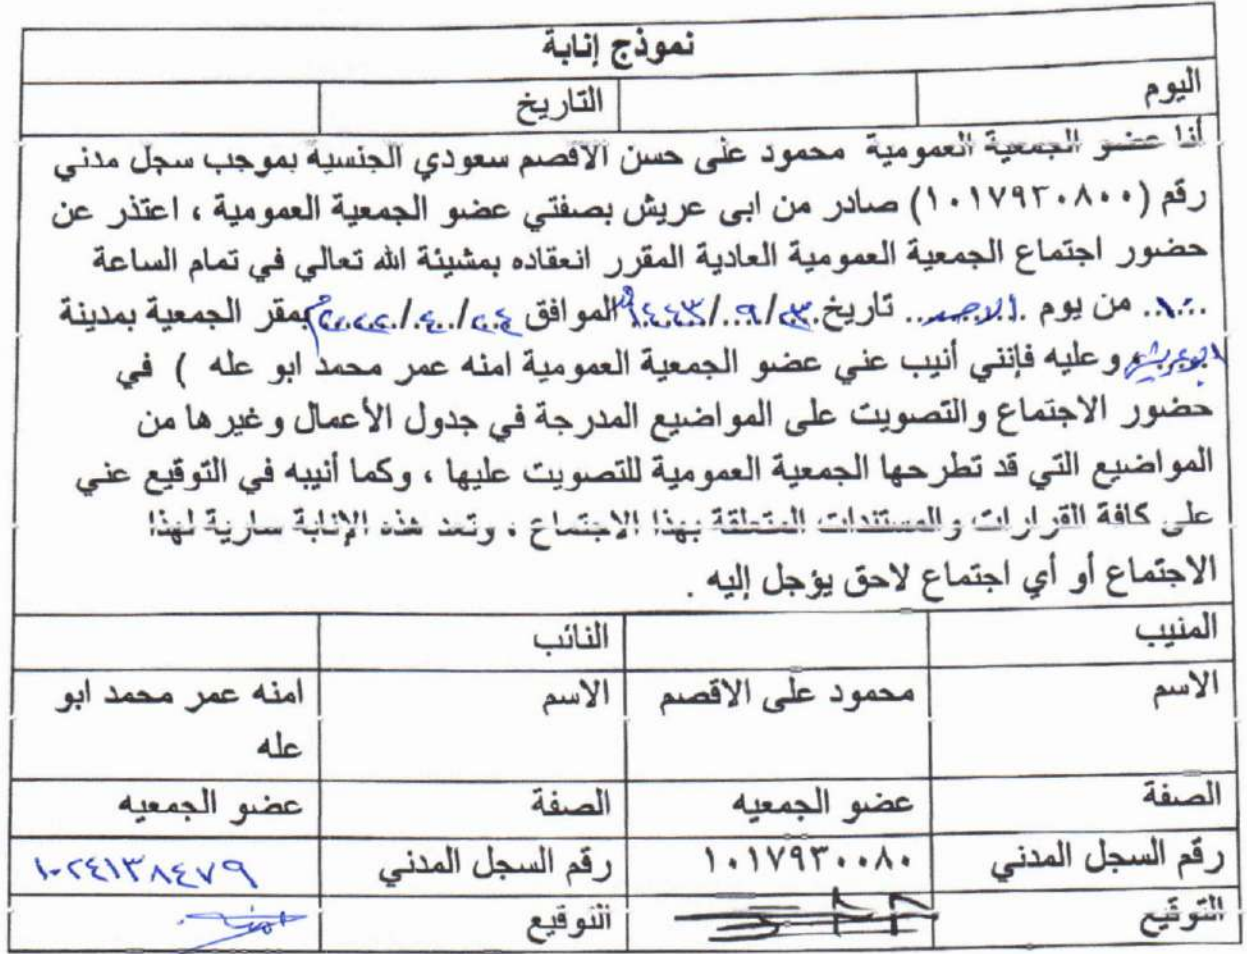 نموذج إنابة
اليوم التاريخ
أنا عضو الجمعية العمومية محمود على حسن الاقصم سعودي الجنسية بموجب سجل مدني
رقم (١٠١٧٩٣٠٨٠٠) صادر من ابى عريش بصفتي عضو الجمعية العمومية ، اعتذر عن
حضور اجتماع الجمعية العمومية العادية المقرر انعقاده بمشيئة الله تعالي في تمام الساعة
من يوم الاحد تاريخ ٢٣/٩/١٤٤٣ الموافق ٢٤/٤/٢٠٢٢م بمقر الجمعية بمدينة
ابوعريش وعليه فإنني أنيب عني عضو الجمعية العمومية امنه عمر محمد ابو عله ) في
حضور الاجتماع والتصويت على المواضيع المدرجة في جدول الأعمال وغيرها من
المواضيع التي قد تطرحها الجمعية العمومية للتصويت عليها ، وكما أنيبه في التوقيع عني
على كافة القرارات والمستندات المتعلقة بهذا الاجتماع ، وتعد هذه الإنابة سارية لهذا
الاجتماع أو أي اجتماع لاحق يؤجل إليه .
المنيب النائب
الاسم محمود على الاقصم الاسم امنه عمر محمد ابو
عله
الصفة عضو الجمعيه الصفة عضو الجمعيه
رقم السجل المدني ١٠١٧٩٣٠٠٨٠ رقم السجل المدني ١٠٢٤١٣٨٤٧٩
التوقيع التوقيع امنه